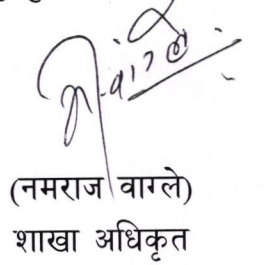 (नमराज वाग्ले)
शाखा अधिकृत